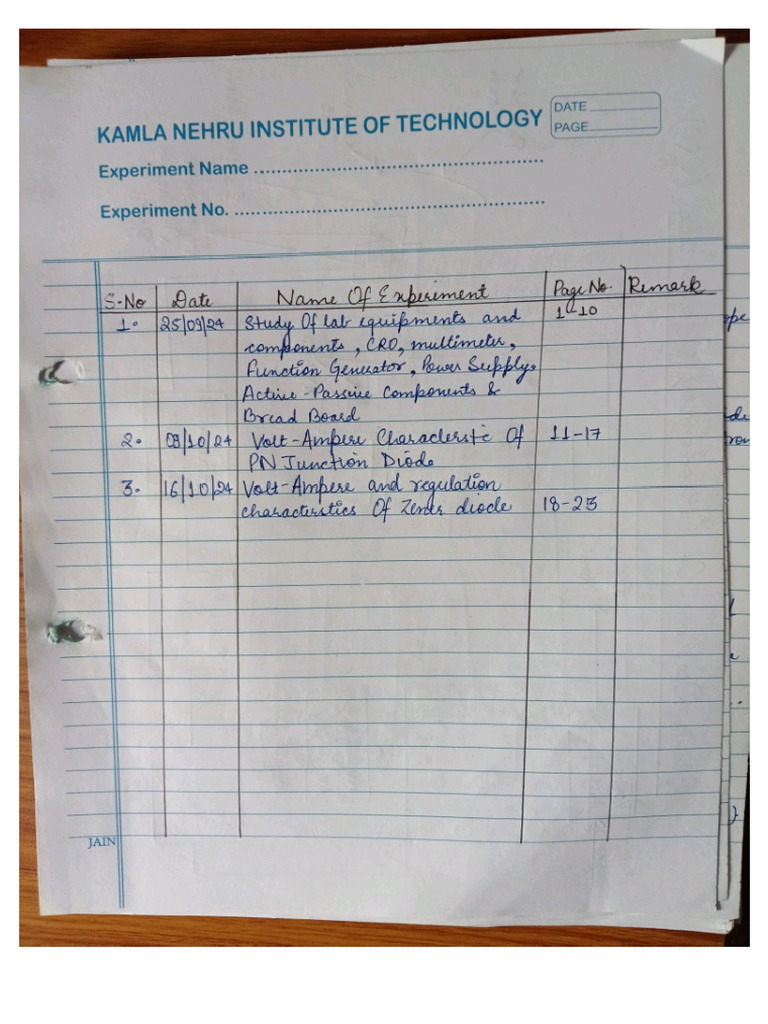 KAMLA NEHRU INSTITUTE OF TECHNOLOGY
DATE
PAGE
Experiment Name
Experiment No.
S-No Date Name Of Experiment Page No. Remark
1. 25/09/24 Study Of lab equipments and 1-10
components, CRO, multimeter,
Function Generator, Power Supply.
Active-Passive Components &
Bread Board
2. 09/10/24 Volt-Ampere Characteristic Of 11-17
PN Junction Diode
3. 16/10/24 Volt-Ampere and regulation
characterstics Of Zener diode 18-23
JAIN